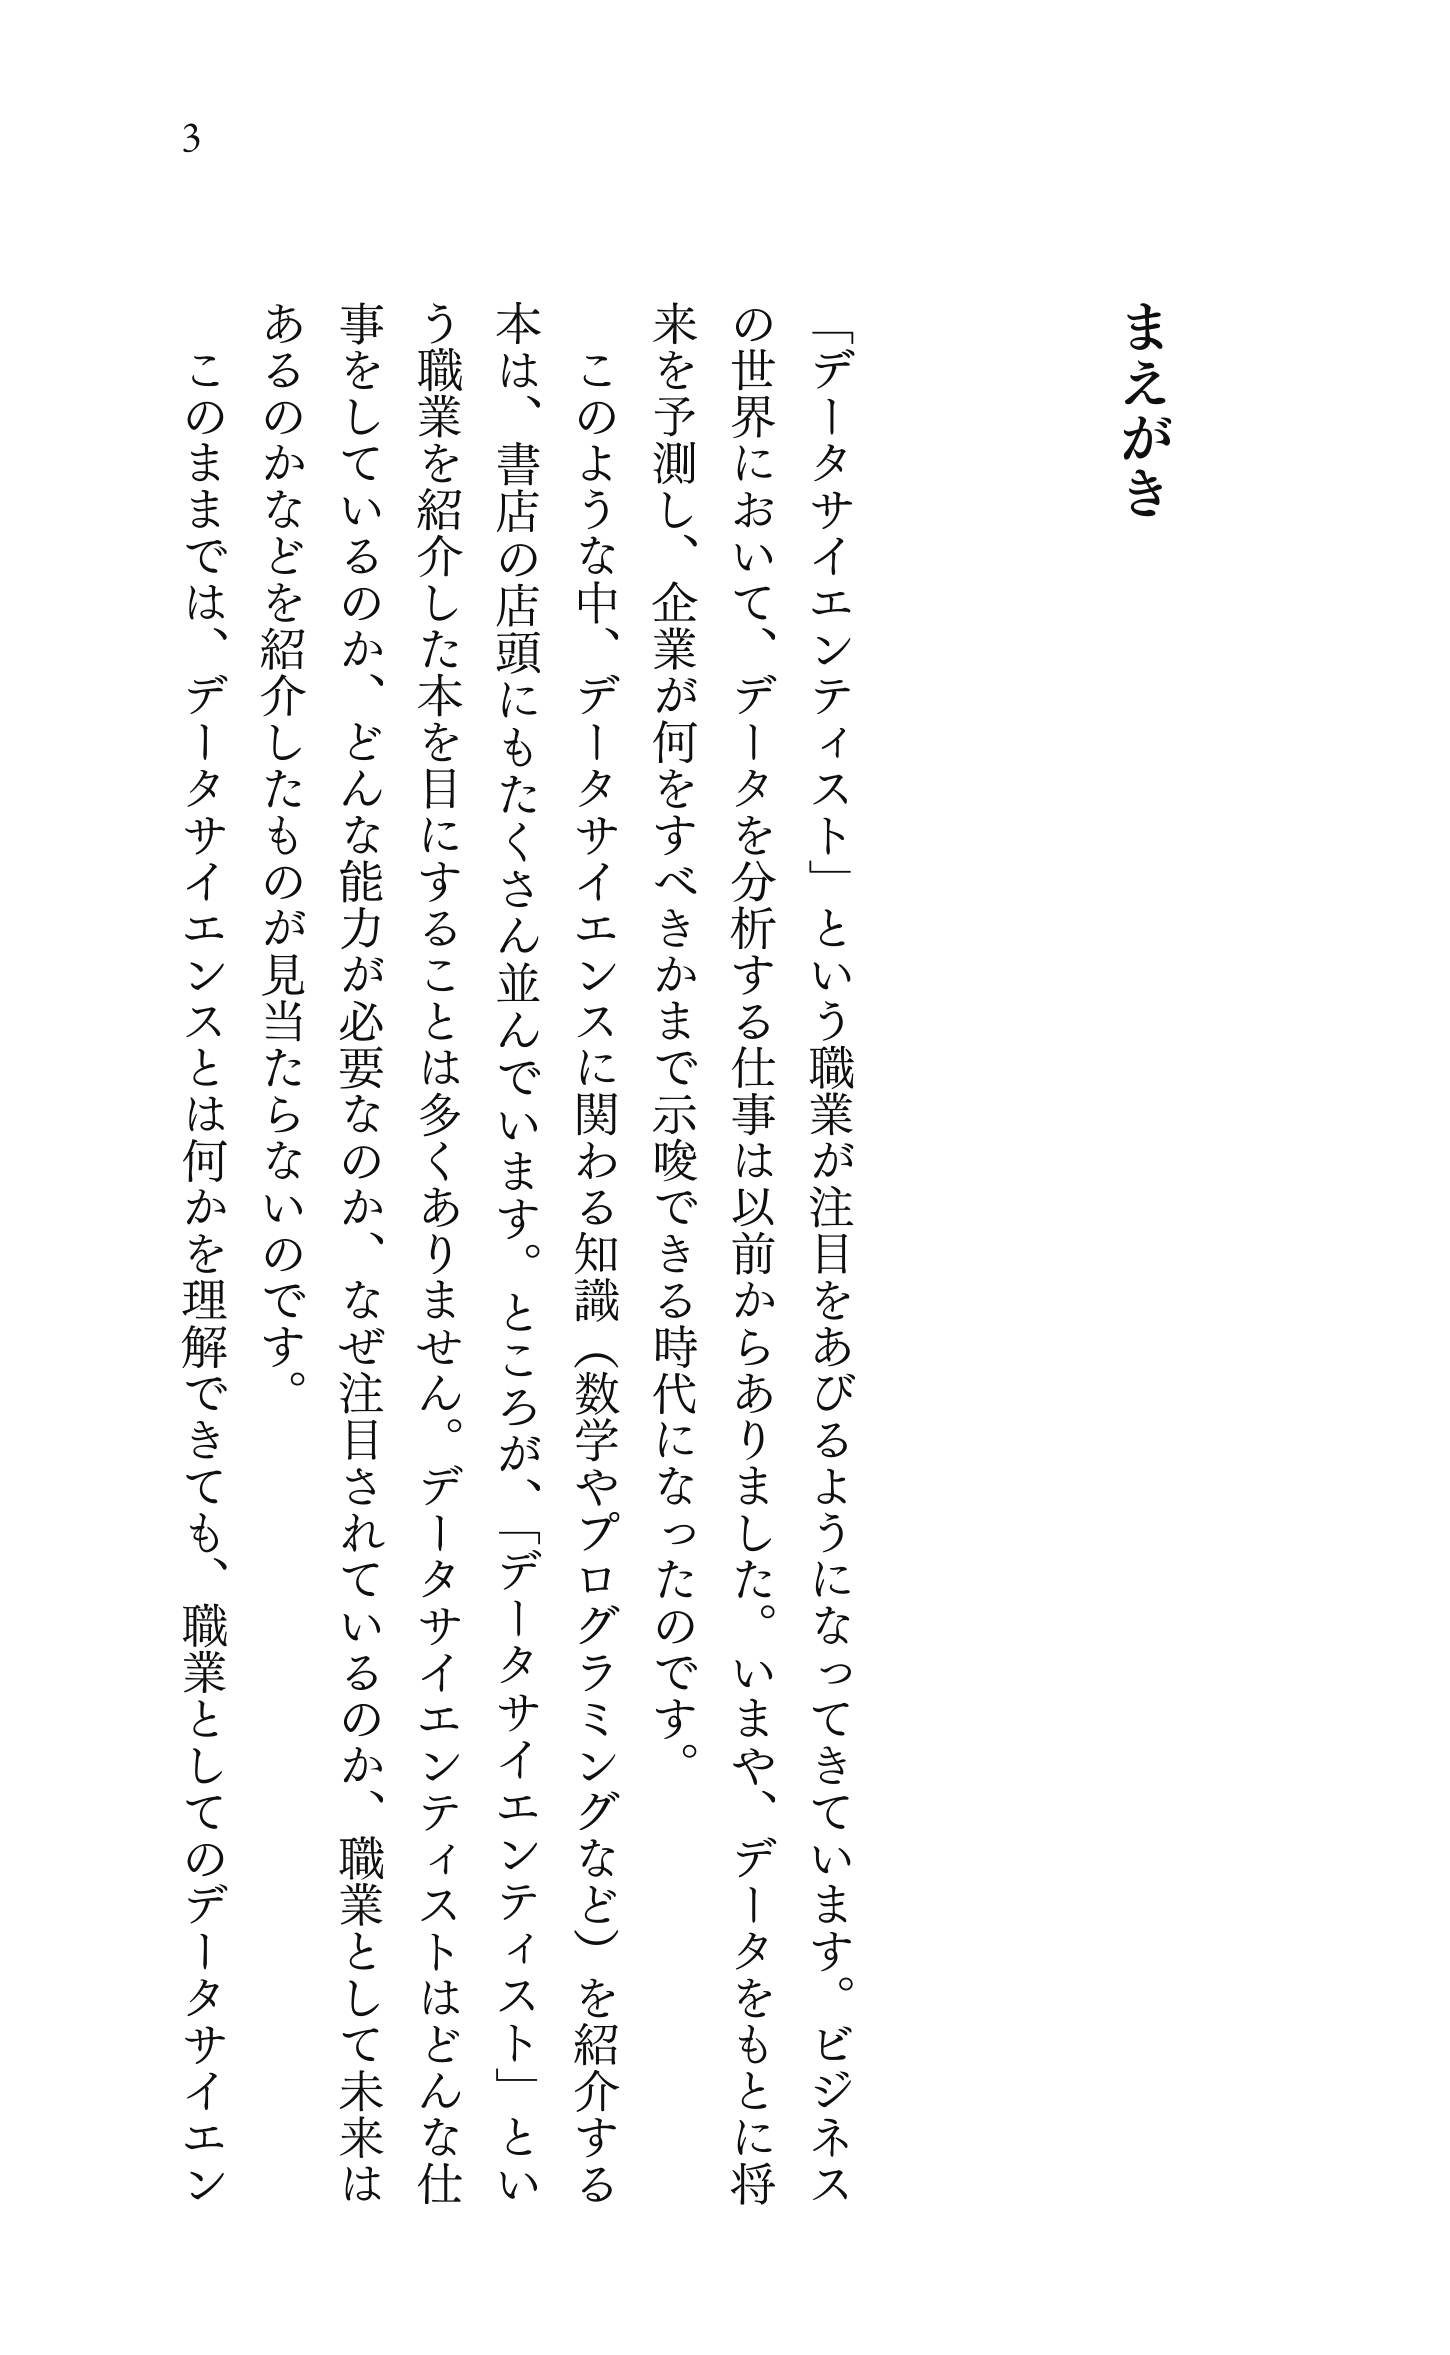 まえがき
「データサイエンティスト」という職業が注目をあびるようになってきています。ビジネス
の世界において、データを分析する仕事は以前からありました。いまや、データをもとに将
来を予測し、企業が何をすべきかまで示唆できる時代になったのです。
　このような中、データサイエンスに関わる知識（数学やプログラミングなど）を紹介する
本は、書店の店頭にもたくさん並んでいます。ところが、「データサイエンティスト」とい
う職業を紹介した本を目にすることは多くありません。データサイエンティストはどんな仕
事をしているのか、どんな能力が必要なのか、なぜ注目されているのか、職業として未来は
あるのかなどを紹介したものが見当たらないのです。
　このままでは、データサイエンスとは何かを理解できても、職業としてのデータサイエン
3